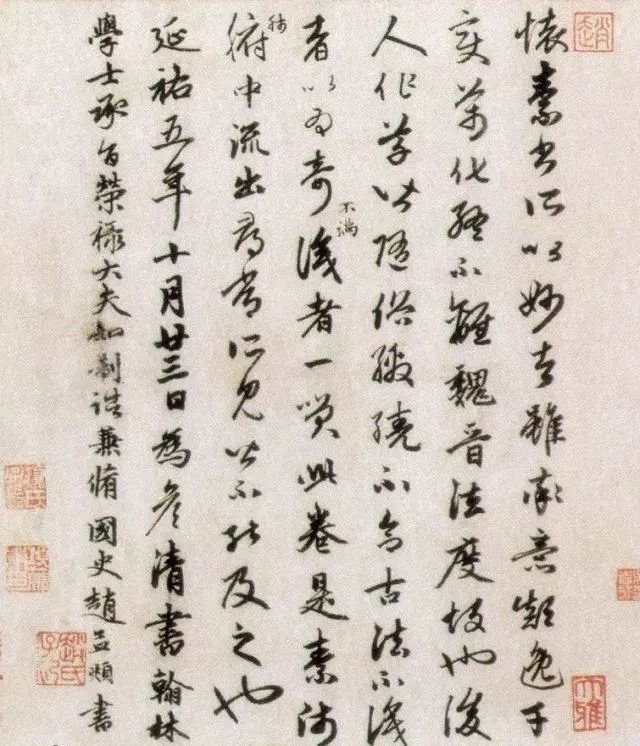 趙
懷素書所以妙者雖率意顛逸千
變萬化終不離魏晉法度故也後
人作草皆隨俗繳繞不合古法不識
者以為奇不滿識者一笑此卷是素師
肺腑中流出尋常所見皆不能及之也
延祐五年十月廿三日為彥清書翰林
學士承旨榮祿大夫知制誥兼脩國史趙孟頫書
大雅
趙氏子昂